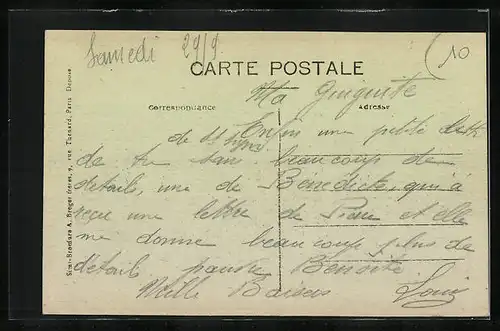 Samedi 29/9
10
CARTE POSTALE
Correspondance
Adresse
Ma Guiguite
Enfin une petite lettre
de toi sans beaucoup de
details, une de Benedicte, qui a
reçu une lettre de et elle
me donne beaucoup plus de
details pauvre Benoite
Mille Baisers Louis
Simi-Bromure A. Breger frères, 9, rue Thénard, Paris Déposé